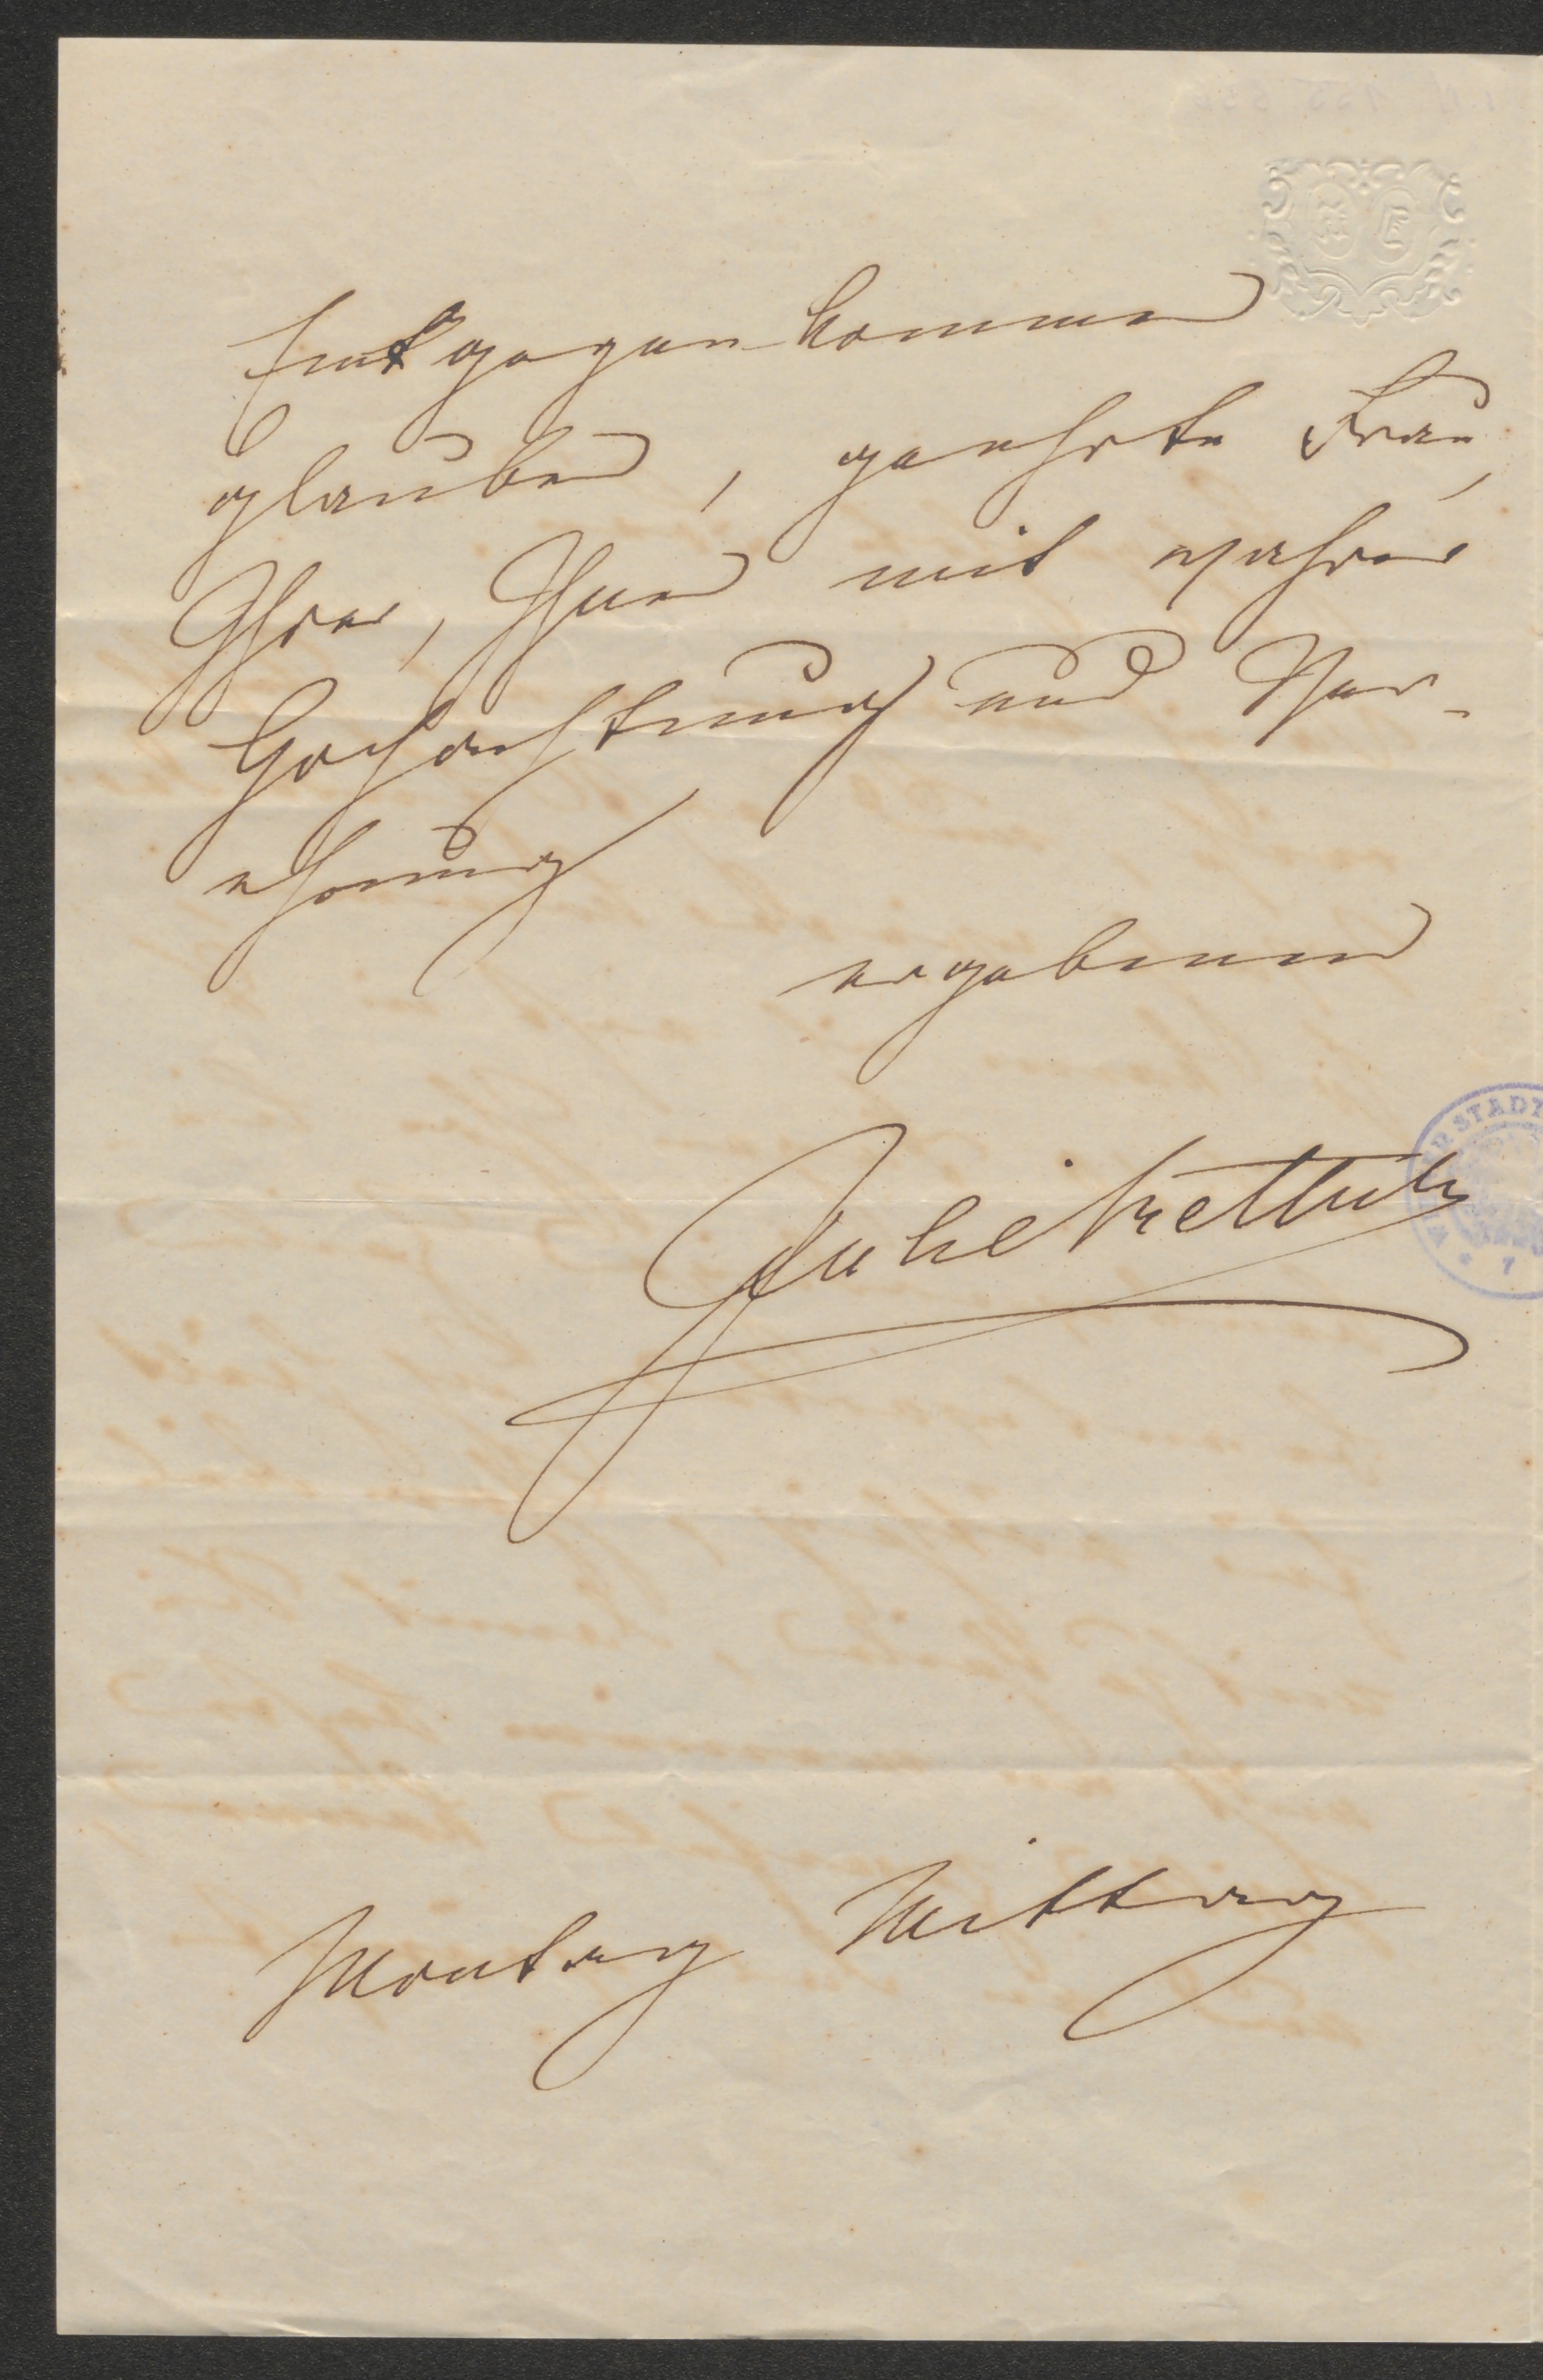 Entgegenkommen
glauben, geehrte Frau,
Ihrer, Ihnen mit wahrer
Hochachtung und Ver-
ehrung
ergebenen
Julie Rettich
Montag Mittag